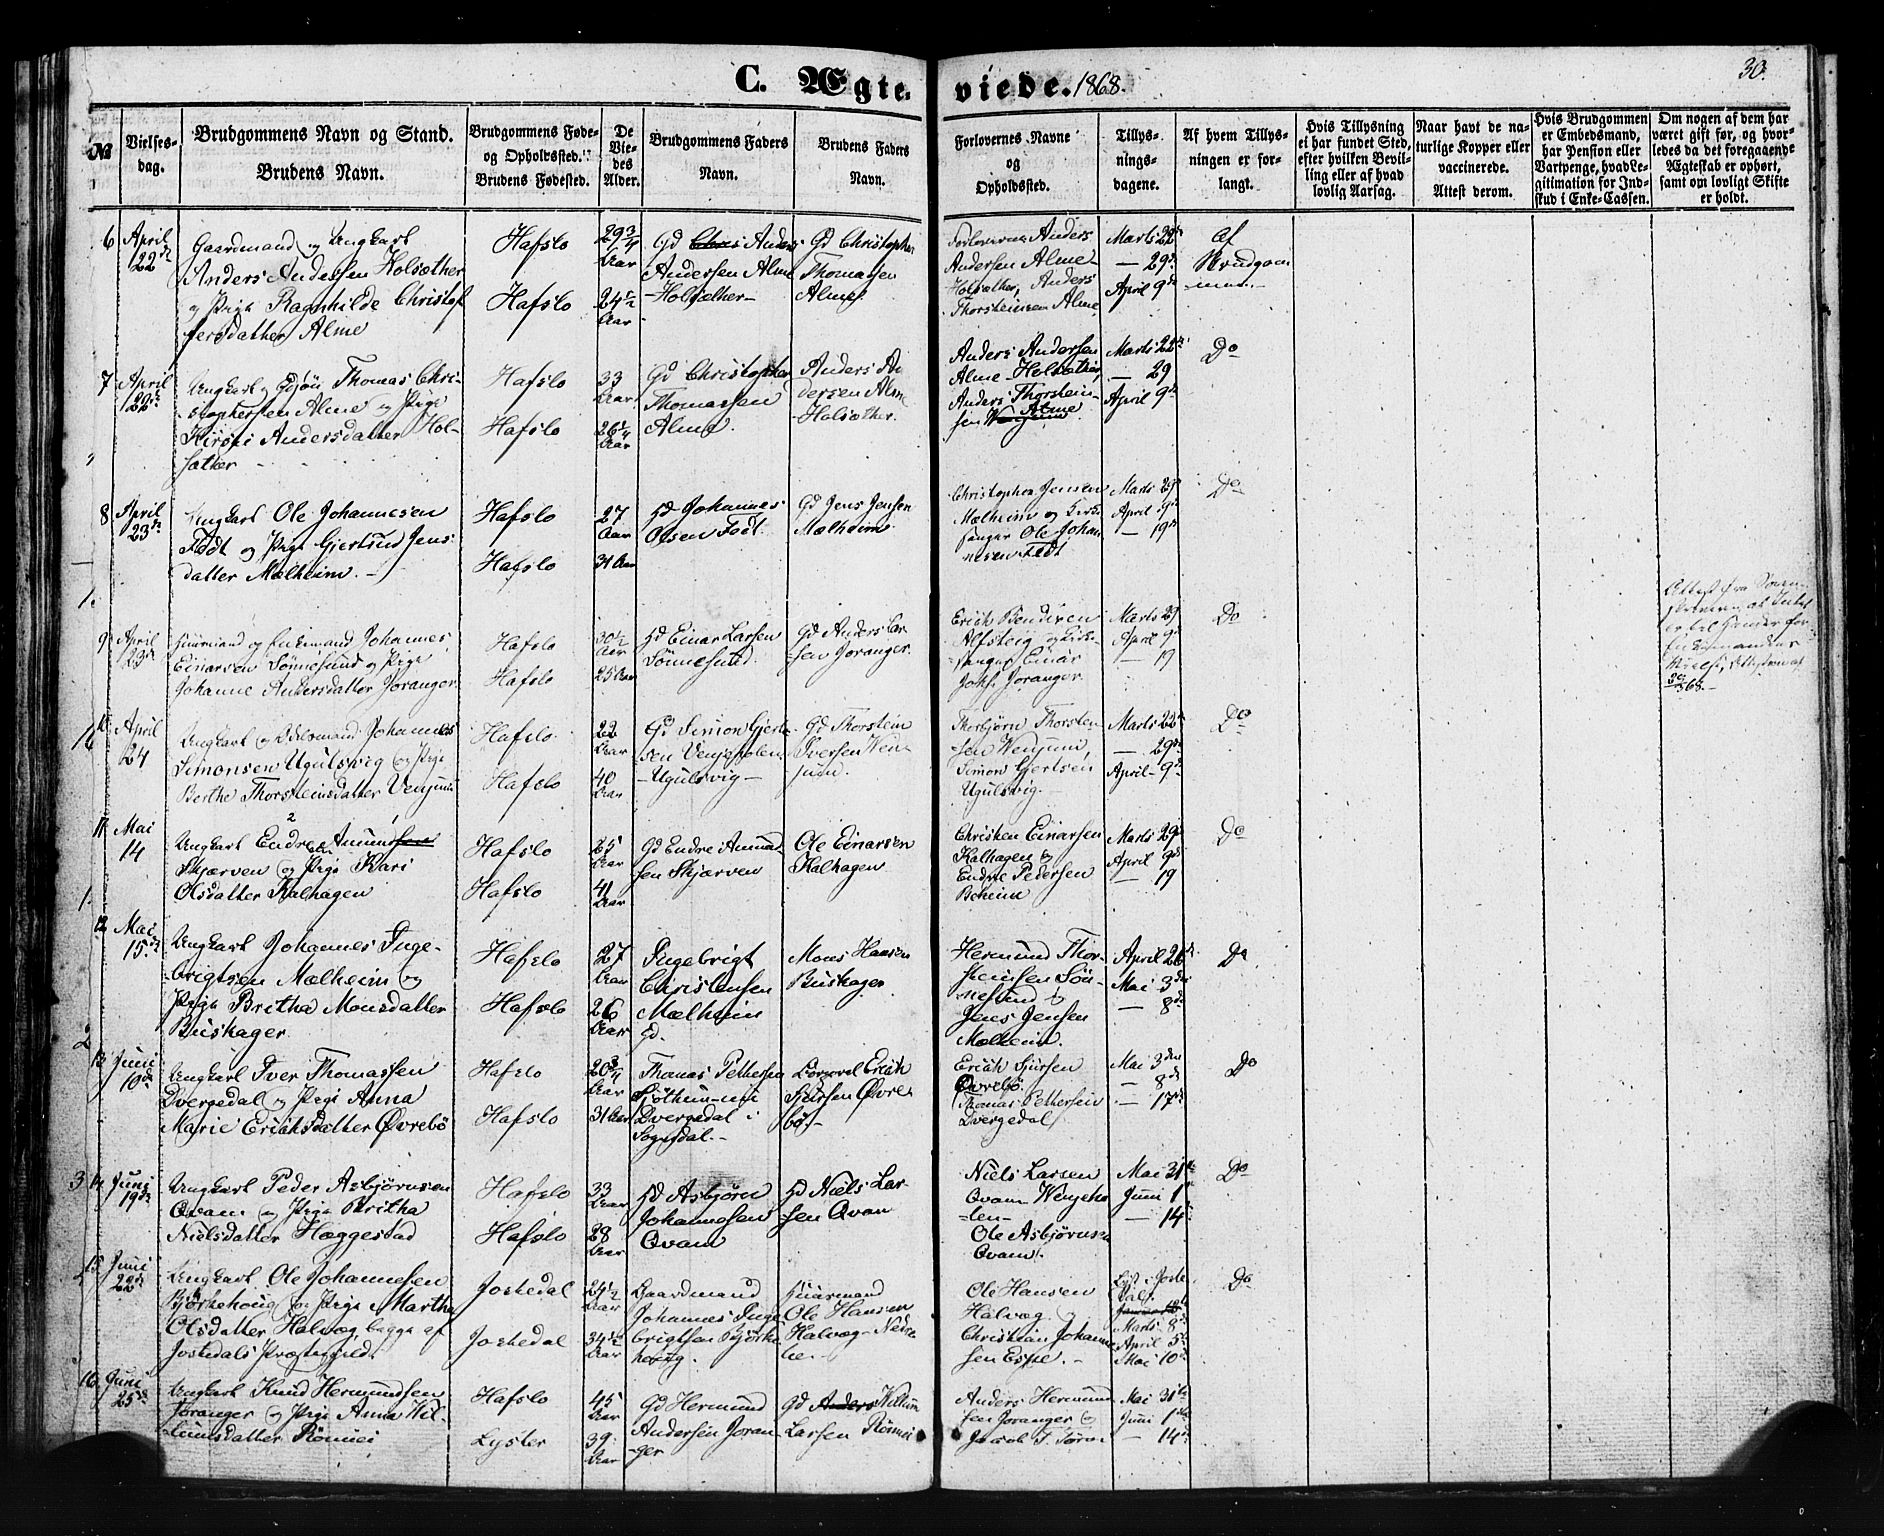 C. Ægte-
viede. 1868.
30.
No
Vielses-
dag.
Brudgommens Navn og Stand.
Brudens Navn.
Brudgommens Føde-
og Opholdssted.
Brudens Fødested.
De
Vie-
des
Alder.
Brudgommens Faders
Navn.
Brudens Faders
Navn.
Forlovernes Navne
og
Opholdssted.
Tillys-
nings-
dagene.
Af hvem Tillys-
ningen er for-
langt.
Hvis Tillysning
ei har fundet Sted,
efter hvilken Bevil-
ling eller af hvad
lovlig Aarsag.
Naar havt de na-
turlige Kopper eller
vaccinerede.
Attest derom.
Hvis Brudgommen
er Embedsmand,
har Pension eller
Vartpenge, hvad Le-
gitimation for Ind-
skud i Enke-Cassen.
Om nogen af dem har
været gift før, og hvor-
ledes da det foregaaende
Ægteskab er ophørt,
samt om lovligt Skifte
er holdt.
6
April
22de
Gaardmand og Ungkarl
Anders Andersen Holsæther
og Pige Ragnhilde Christof
fersdatter Alme
Hafslo
Hafslo
29 3/4
Aar
24 1/2
Aar
Gd Anders
Andersen Alme
-Holsæther-
Gd Christopher
Thomassen
Alme
Forloverne Anders
Andersen Alme-
Holsæther, Anders
Thorsteinsen Alme
Marts 22de
— 29de
April 9de
Af
Brudgom
men.-
7
April
22de
Ungkarl og Thomas Chri-
stophersen Alme og Pige
Kirsti Andersdatter Hol-
sæther
Hafslo
Hafslo
33
Aar
26 1/4
Aar
Gd Christopher
Thomassen
Alme
Anders An
dersen Alme
Holsæther.
Anders Andersen
Alme-Holsæther,
Anders Thorstein-
sen Alme
Marts 22de
— 29
April 9de
Do
8
April
23de
Ungkarl Ole Johannesen
Fodt og Pige Gjertrud Jens
datter Mælheim.-
Hafslo
Hafslo
27
Aar
31 Aar
Hd Johannes
Olsen Fodt.
Gd Jens Jensen
Mælheim
Christopher Jensen
Mælheim og Kirk-
sanger Ole Johan
nesen Fodt
Marts 29
April 9de
— 19de
Do
9
April
23de
Huusmand og Enkemand Johannes
Einarsen Sønnesund og Pige
Johanne Andersdatter Joranger
Hafslo
Hafslo
30 1/2
Aar
25 Aar
Hd Einar Larsen
Sønnesund.
Gd Anders Lar
sen Joranger.
Erich Bendixen
Alsteig og Kirk-
sanger Einar
Johs. Joranger
Marts 29
April 9de
— 19
Do
10
April
24
Ungkarl og Odelsmand Johannes
Simonsen Ugulsvig og Pige
Berthe Thorsteinsdatter Venjum
Hafslo.
Hafslo
22
Aar
40
Aar
Gd Simon Gjert-
sen Venjeholen
-Ugulsvig-
Gd Thorstein
Iversen Wen
jum.
Thorbjørn Thorsten-
sen Wenjum,
Simon Gjertsen
Ugulsvig.
Marts 22de
— 29de
April- 9de
Do
11
Mai
14
Ungkarl Endre Amund
Skjærven og Pige Kari
Olsdatter Kalhagen
Hafslo
Hafslo
25
Aar
41
Aar
Gd Endre Amund
sen Skjærven
Ole Einarsen
Kalhagen
Christen Einarsen
Kalhagen og
Endre Pedersen
Beheim
Marts 29de
April 9de
— 19
Do
12
Mai
15de
Ungkarl Johannes Inge-
brigtsen Mælheim og
Pige Britha Monsdatter
Buskager.
Hafslo
Hafslo
27
Aar
26
Aar
Ingebrigt
Christensen
Mælheim
Gd.
Mons Hansen
Buskager
Hermund Thor-
steinsen Søn-
nesund og
Jens Jensen
Mælheim.
April 26de
Mai 3den
— 8de
Do
13
Juni
10de
Ungkarl Iver Thomassen
Dvergedal og Pige Anna
Marie Erichsdatter Øvrebø
Hafslo
Hafslo
20 3/4
Aar
31 Aar
Thomas Pettersen
Dvergedal i
Sogndal.-
Erich
Sjursen Øvre-
bø.-
Erich Sjursen
Øvrebø.
Thomas Pettersen
Dvergedal
Mai 3den
— 8de
— 17de
Do
14
Juni
19de
Ungkarl Peder Asbjørnsen
Qvam og Pige Britha
Nielsdatter Heggestad
Hafslo
Hafslo
33
Aar
28
Aar
Hd Asbjørn
Johannesen
Qvam
Hd Niels Lar-
sen Qvam
Niels Larsen
Qvam-Wenjeho-
len-
Ole Asbjørnsen
Qvam.
Mai 31te
Juni 1
— 14
Do
15
Juni
22de
Ungkarl Ole Johannesen
Bjørkehoug og Pige Martha
Olsdatter Halvæg, begge af
Jostedals Præstegjeld.
Jostedal
Jostedal
24 1/2
Aar
34 1/2
Aar
Gaardmand
Johannes Inge
brigtsen Bjørke
houg.
Huusmand
Ole Hansen
Halvæg- Nedre
lie.-
Ole Hansen
Halvæg og
Christian Johanne
sen Espe.-
Lyst i Joste
dal.
Marts 8de
April 5te
Mai 10de
Do
16
Juni
25de
Ungkarl Knud Hermundsen
Joranger og Pige Anna Wil-
lumsdatter Rønnei
Hafslo
Lyster
45
Aar
39
Aar
Gd Hermund
Andersen Joran
-ger
Gd Anders Willum
Larsen Rønnei
Anders Hermund
sen Joranger og
Jacob T. Joran
Mai 31te
Juni 1ste
— 14de